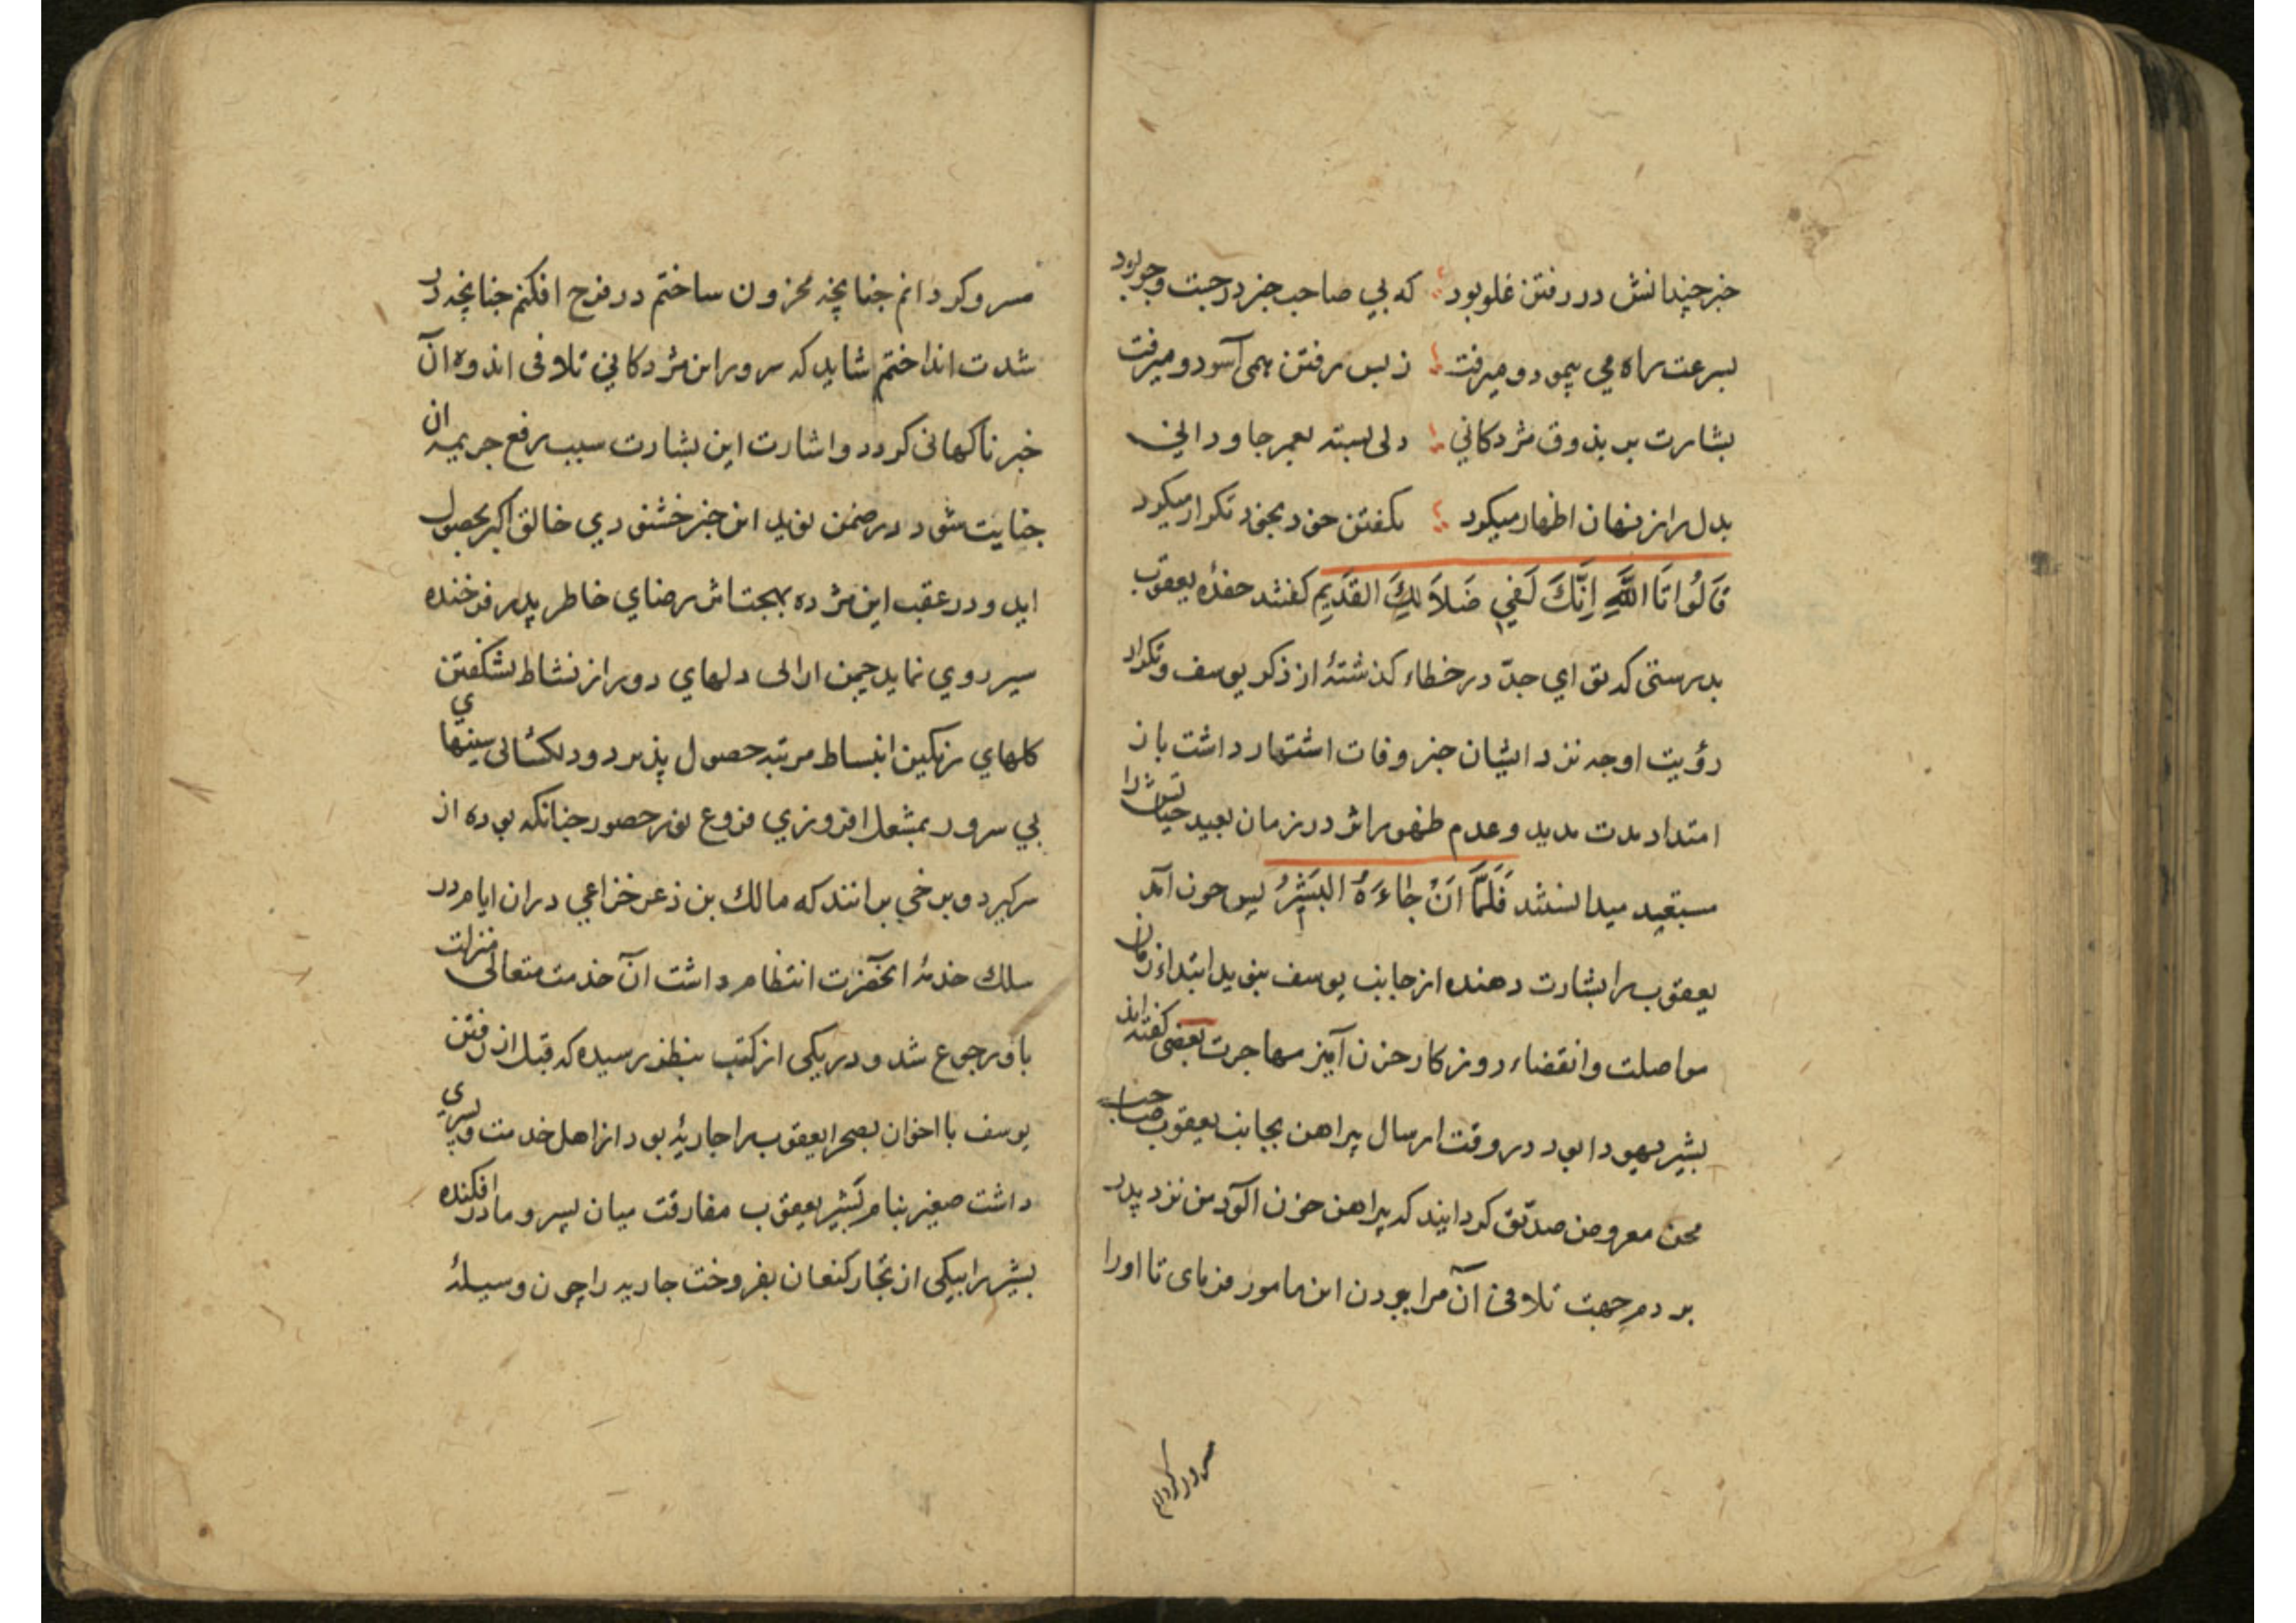 خبر چندانش در رفتن غلو بود که بی صاحب خبر در جست وجو بود
بسرعت راه می پیمود و میرفت ز بس رفتن نمی آسود و میرفت
بشارت بر بذوق مژدکانی دلی بسته بعمر جاودانی
بدل راز نهان اظهار میکرد بکفتن خود بخود تکرار میکرد
قَالُوا تَا اللَّهِ اِنَّكَ لَفِي ضَلاَلِكَ القَدِيمِ کفتند حفدهٔ یعقوب
بدرستی که تو ای جدّ در خطاء کذشتهٔ از ذکر یوسف و تکرار
رؤیت او چه نزد ایشان خبر وفات اشتهار داشت با ن
امتداد مدت مدید و عدم ظهور اثر در زمان بعید حیاتش را
مستبعد میدانستند فَلَمَّا اَنْ جَاءَهُ البَشِيرُ پس چون آمد
یعقوب را بشارت دهنده از جانب یوسف بنوید ابتداء زمان
مواصلت و انقضاء روزکار حزن آمیز مهاجرت بعضی کفته اند
بشیر یهودا بود در وقت ارسال پیراهن بجانب یعقوب صاحب
محن معروض صدّیق کردانید که پیراهن خون آلود من نزد پدر
بردم جهت تلافی آن مرا ببردن این مامور فرمای تا اورا
مسرور کردانم
مسرور کردانم چنانچه محزون ساختم در فرح افکنم چنانچه در
شدت انداختم شاید که سرور این مژدکانی تلافی اندوه آن
خبر ناکهانی کردد و اشارت این بشارت سبب رفع جریمه ان
جنایت شود در ضمن نوید این خبر خشنودی خالق اکبر بحصول
اید و در عقب این مژده بهجت اثر رضای خاطر پدر فرخنده
سیر روی نماید چمن ارائی دلهای دور از نشاط بشکفتن
کلهای رنکین انبساط مرتبه حصول پذیرد و دلکشائی سینهای
بی سرور بمشعل افروزی فروغ نور حضور چنانکه بوده از
سر کیرد و برخی برانند که مالك بن ذعر خزاعی دران ایام در
سلك خدمهٔ انحضرت انتظام داشت آن خدمت متعالی منزلت
باو رجوع شد و در یکی از کتب بنظر رسیده که قبل از رفتن
یوسف با اخوان بصحرا یعقوب را جاریهٔ بود از اهل خدمت و پسری
داشت صغیر بنام بشیر یعقوب مفارقت میان پسر و مادر افکنده
بشیر را بیکی از تجار کنعان بفروخت جاریه را چون وسیلهٔ